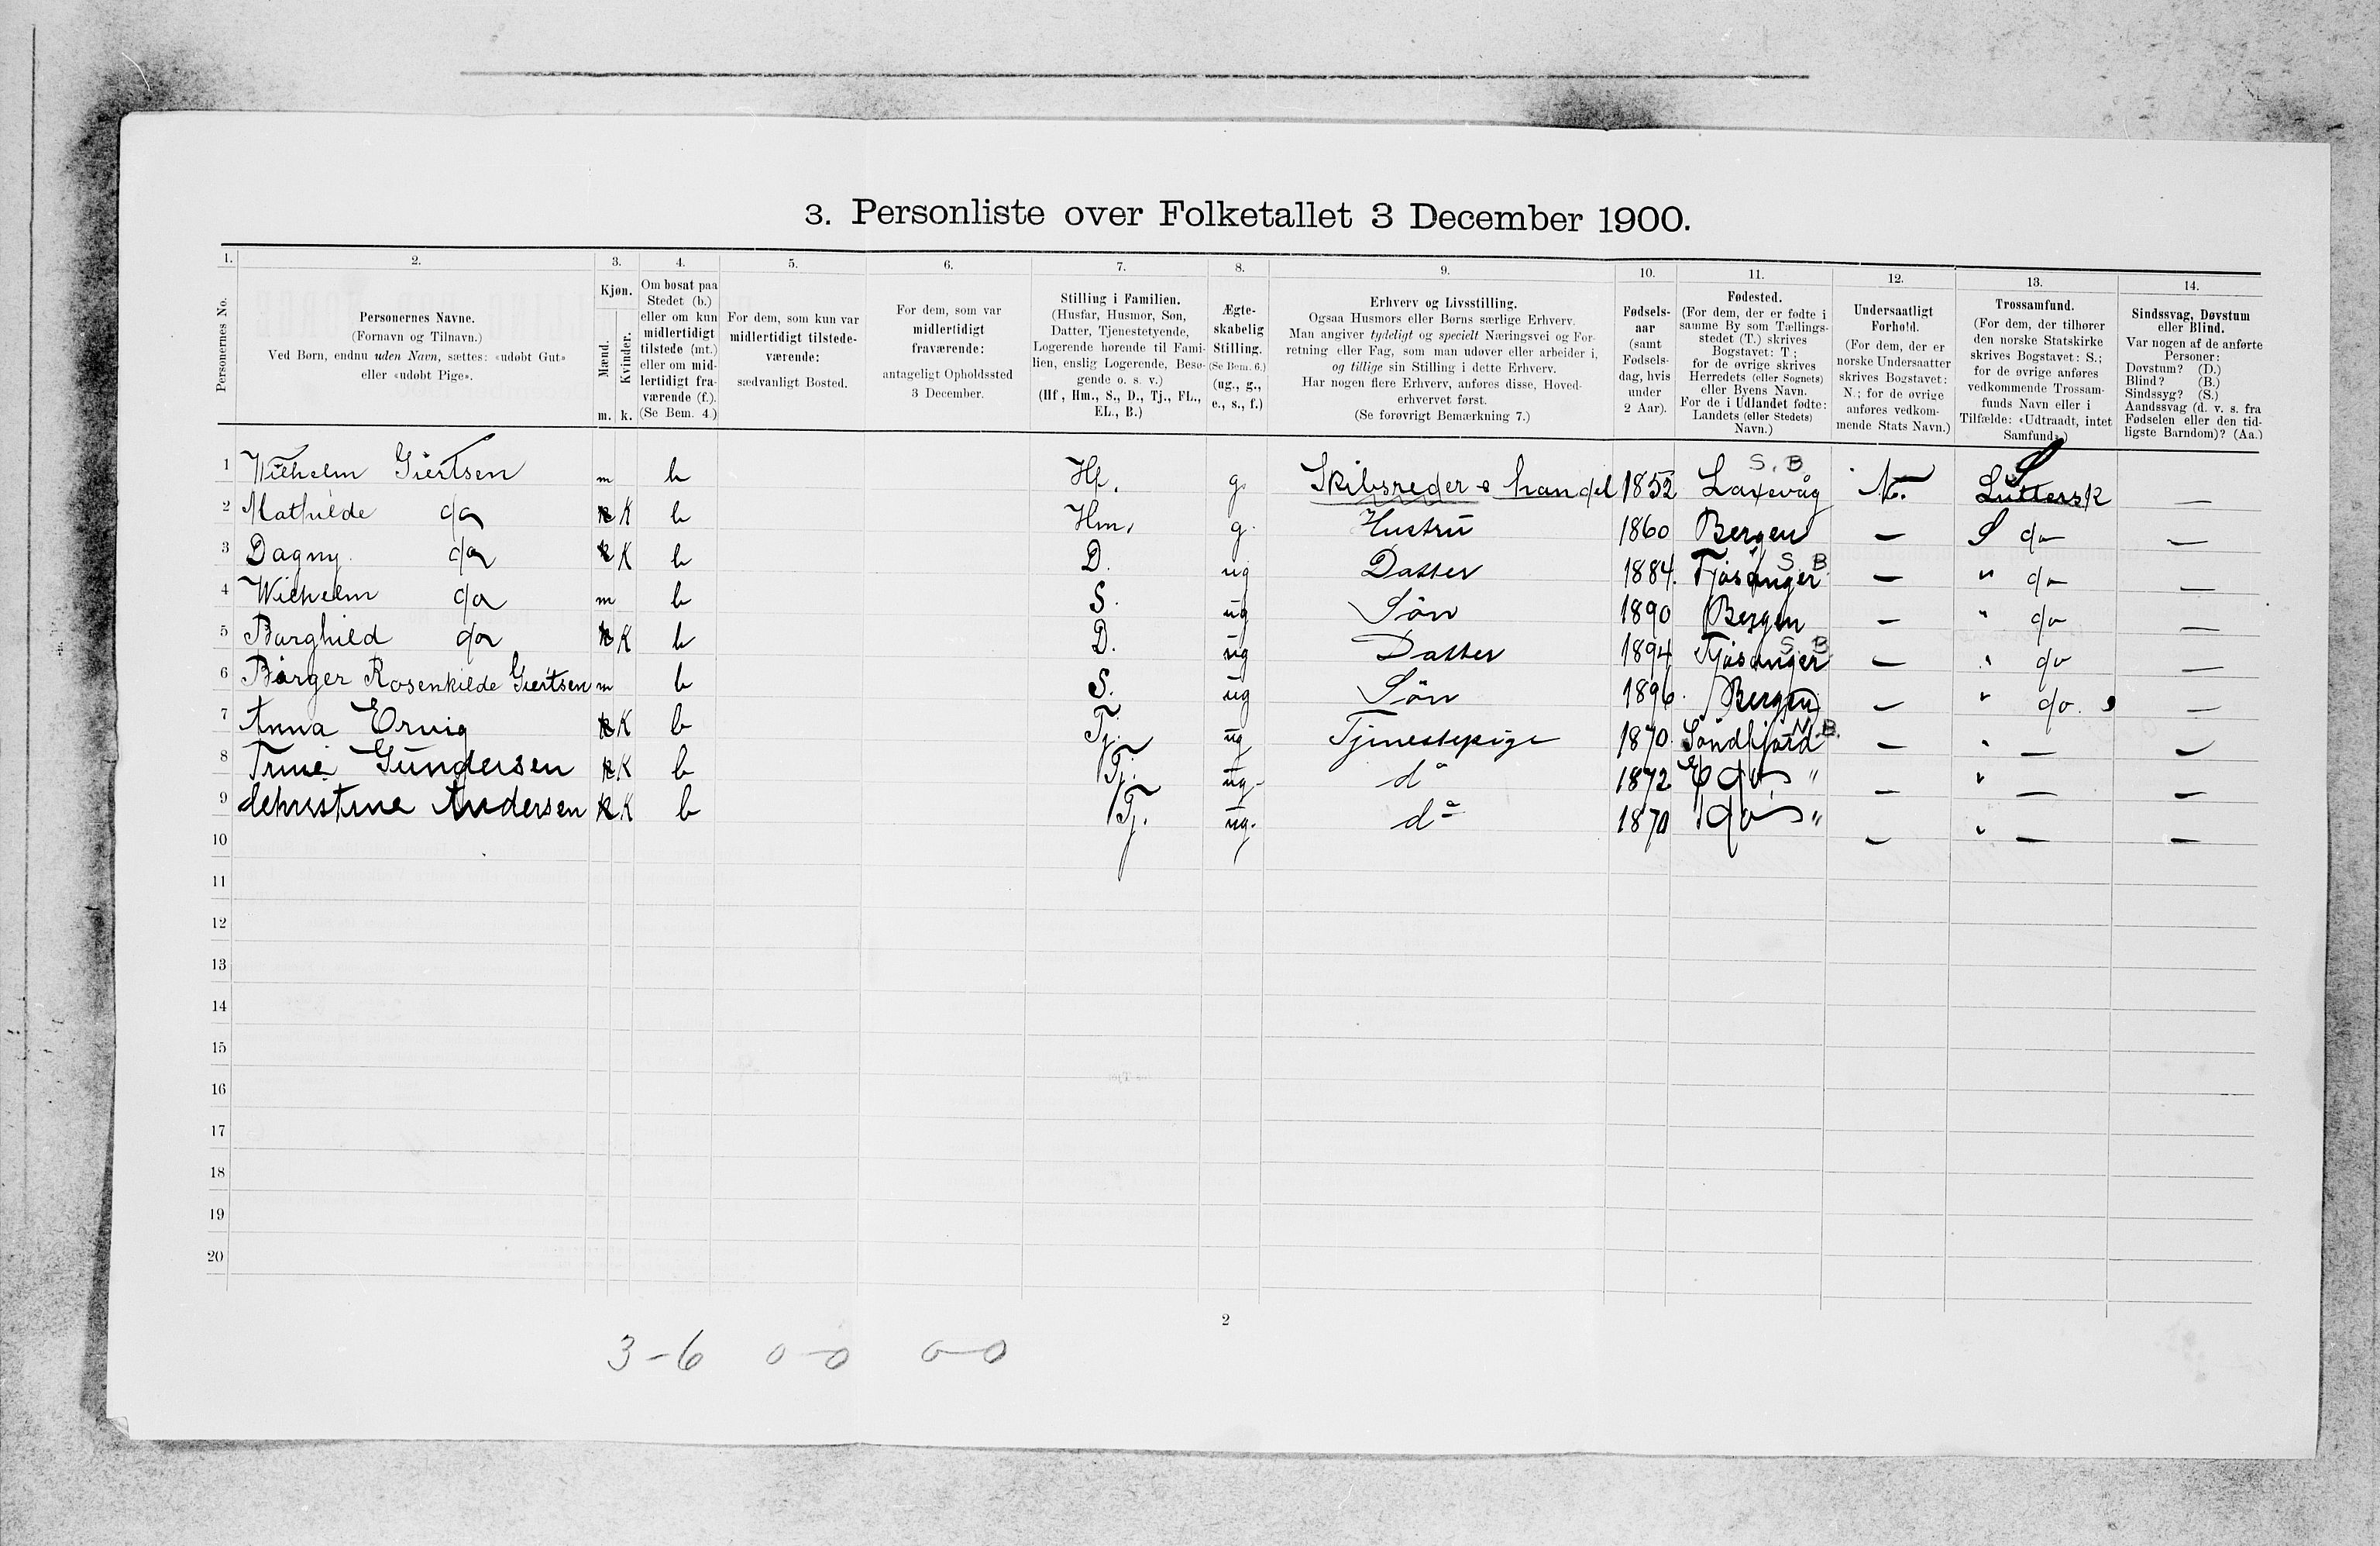 3. Personliste over Folketallet 3 December 1900.
1. 2. 3. 4. 5. 6. 7. 8. 9. 10. 11. 12. 13. 14.
Personernes No.
Personernes Navne.
(Fornavn og Tilnavn.)
Ved Børn, endnu uden Navn, sættes: «udøbt Gut»
eller «udøbt Pige».
Kjøn.
Mænd.
Kvinder.
m. k.
Om bosat paa
Stedet (b.)
eller om kun
midlertidigt
tilstede (mt.)
eller om mid-
lertidigt fra-
værende (f.).
(Se Bem. 4.)
For dem, som kun var
midlertidigt tilstede-
værende:
sædvanligt Bosted.
For dem, som var
midlertidigt
fraværende:
antageligt Opholdssted
3 December.
Stilling i Familien.
(Husfar, Husmor, Søn,
Datter, Tjenestetyende,
Logerende hørende til Fami-
lien, enslig Logerende, Besø-
gende o. s. v.)
(Hf., Hm., S., D., Tj., FL.,
EL., B.)
Ægte-
skabelig
Stilling.
(Se Bem. 6.)
(ug., g.,
e., s., f.)
Erhverv og Livsstilling.
Ogsaa Husmors eller Børns særlige Erhverv.
Man angiver tydeligt og specielt Næringsvei og For-
retning eller Fag, som man udøver eller arbeider i,
og tillige sin Stilling i dette Erhverv.
Har nogen flere Erhverv, anføres disse, Hoved-
erhvervet først.
(Se forøvrigt Bemærkning 7.)
Fødsels-
aar
(samt
Fødsels-
dag, hvis
under
2 Aar).
Fødested.
(For dem, der er fødte i
samme By som Tællings-
stedet (T.) skrives
Bogstavet: T;
for de øvrige skrives
Herredets (eller Sognets)
eller Byens Navn.
For de i Udlandet fødte:
Landets (eller Stedets)
Navn.)
Undersaatligt
Forhold.
(For dem, der er
norske Undersaatter
skrives Bogstavet:
N.; for de øvrige
anføres vedkom-
mende Stats Navn.)
Trossamfund.
(For dem, der tilhører
den norske Statskirke
skrives Bogstavet: S.;
for de øvrige anføres
vedkommende Trossam-
funds Navn eller i
Tilfælde: «Udtraadt, intet
Samfund».)
Sindssvag, Døvstum
eller Blind.
Var nogen af de anførte
Personer:
Døvstum? (D.)
Blind? (B.)
Sindssyg? (S.)
Aandssvag (d. v. s. fra
Fødselen eller den tid-
ligste Barndom)? (Aa.)
1 Wilhelm Giertsen m b Hf. g. Skibsreder & handel 1852 Laxevåg S. B. N. Luttersk S —
2 Mathilde do K b Hm. g. Hustru 1860 Bergen — S do —
3 Dagny do K b D. ug Datter 1884. Fjøsanger S. B. — " do —
4 Wilhelm do m b S. ug Sön 1890 Bergen — " do —
5 Borghild do K b D. ug Datter 1894 Fjøsanger S. B. — " do —
6 Börger Rosenkilde Giertsen m b S. ug Sön 1896. Bergen — " do. —
7 Anna Ervig K b Tj. ug Tjenestepige 1870 Söndfjord N. B. — " — —
8 Trine Gundersen K b Tj. ug. do 1872 do " — " — —
9 Christine Andersen K b Tj. ug. do 1870 do " — " — —
10
11
12
13
14
15
16
17
18
19
20
2
3-6 0-0 0-0